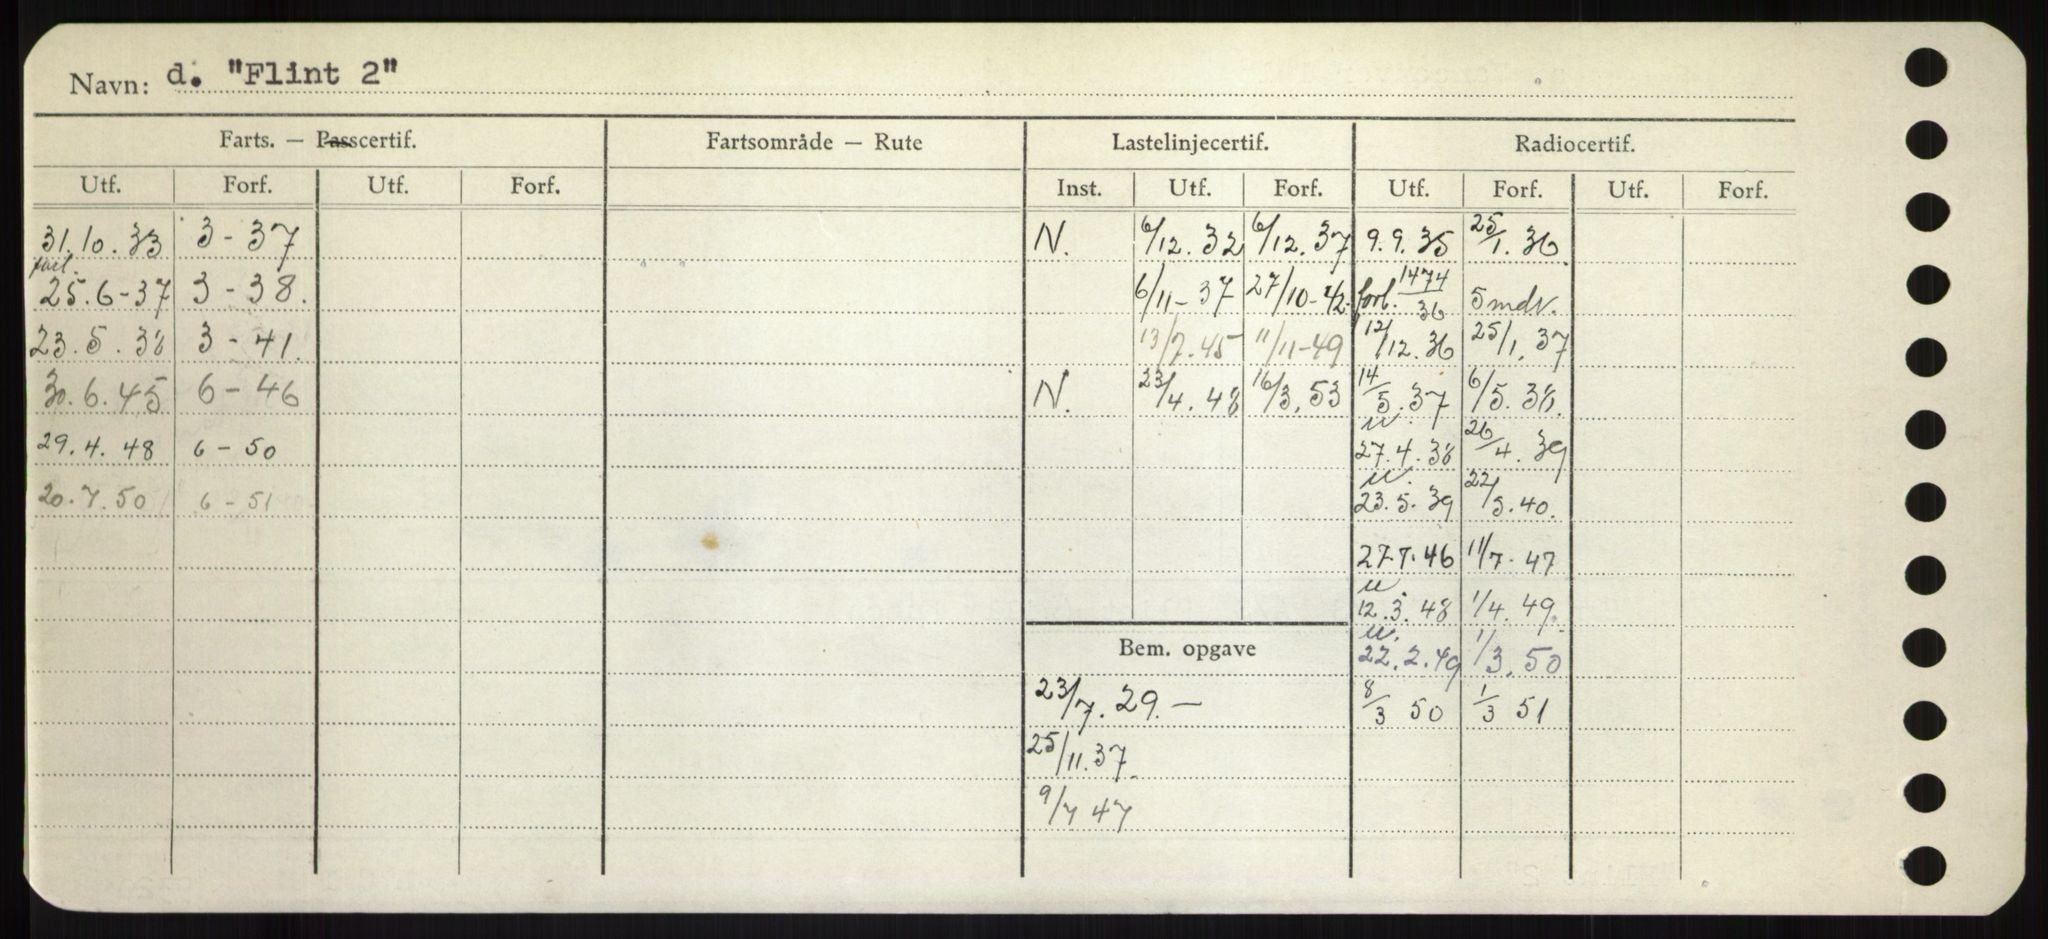 Navn: d. "Flint 2"
Farts. — Passcertif. Fartsområde — Rute Lastelinjecertif. Radiocertif.
Utf. Forf. Utf. Forf. Inst. Utf. Forf. Utf. Forf. Utf. Forf.
31.10.33 3-37 N. 6/12.32 6/12.37 9.9.35 25/1.36
forl.
25.6-37 3-38. 6/11-37 27/10-42 forl. 1474/36 5 mdr.
23.5.38 3-41. 13/7.45 11/11-49 12/12.36 25/1.37
30.6.45 6-46 N. 23/4.48 16/3.53 14/5.37 6/5.38.
29.4.48 6-50 27.4.38 26/4.39
20.7.50 6-51 23.5.39 22/5.40.
27.7.46 11/7.47
12.3.48 1/4.49.
Bem. opgave 22.2.49 1/3.50
23/7.29.— 8/3 50 1/3 51
25/11.37.
9/7 47